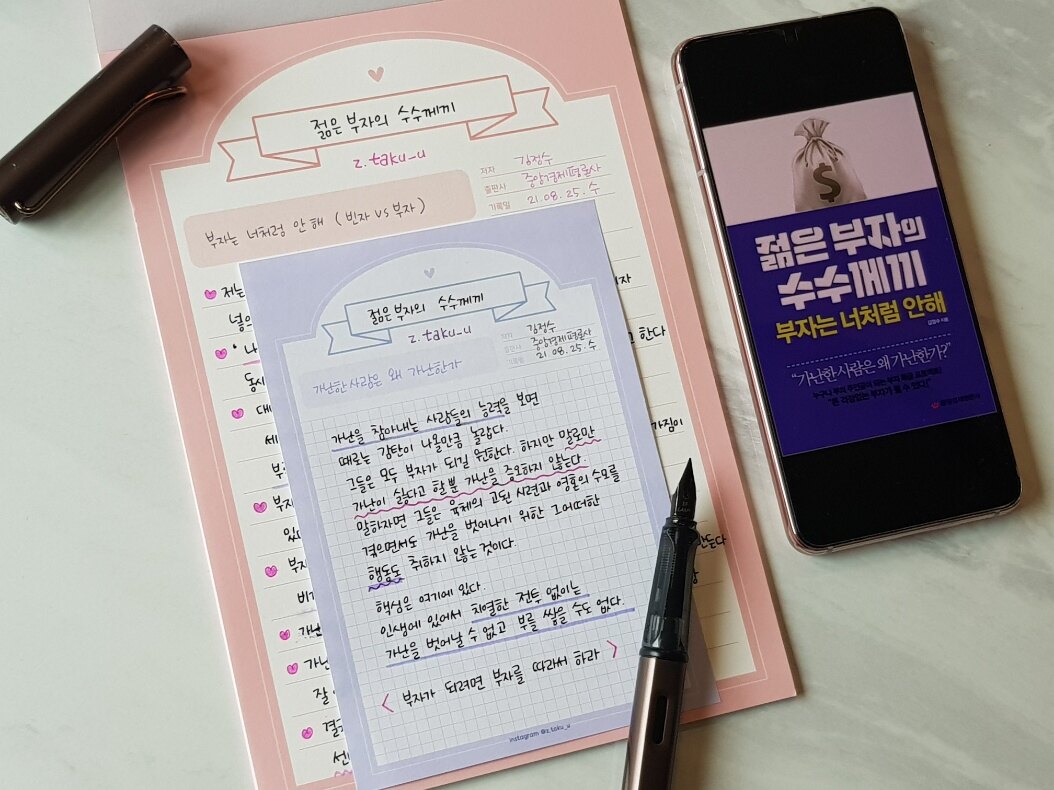 젊은 부자의 수수께끼
z.taku_u
저자 김정수
출판사 중앙경제평론사
기록일 21.08.25.수
부자는 너처럼 안 해 (빈자 vs 부자)
저는
동시
대
부
있다
부자
비
가난
가난
잘
결국
한다
가짐이
젊은 부자의 수수께끼
z.taku_u
저자 김정수
출판사 중앙경제평론사
기록일 21.08.25.수
가난한 사람은 왜 가난한가
가난을 참아내는 사람들의 능력을 보면
때로는 감탄이 나올만큼 놀랍다.
그들은 모두 부자가 되길 원한다. 하지만 말로만
가난이 싫다고 할 뿐 가난을 증오하지 않는다.
말하자면 그들은 육체의 고된 시련과 영혼의 수모를
겪으면서도 가난을 벗어나기 위한 그어떠한
행동도 취하지 않는 것이다.
핵심은 여기에 있다.
인생에 있어서 치열한 전투 없이는
가난을 벗어날 수 없고 부를 쌓을 수도 없다.
< 부자가 되려면 부자를 따라서 하라 >
instagram @z_taku_u
$
젊은 부자의
수수께끼
부자는 너처럼 안해
김정수 지음
“가난한 사람은 왜 가난한가?”
중앙경제평론사